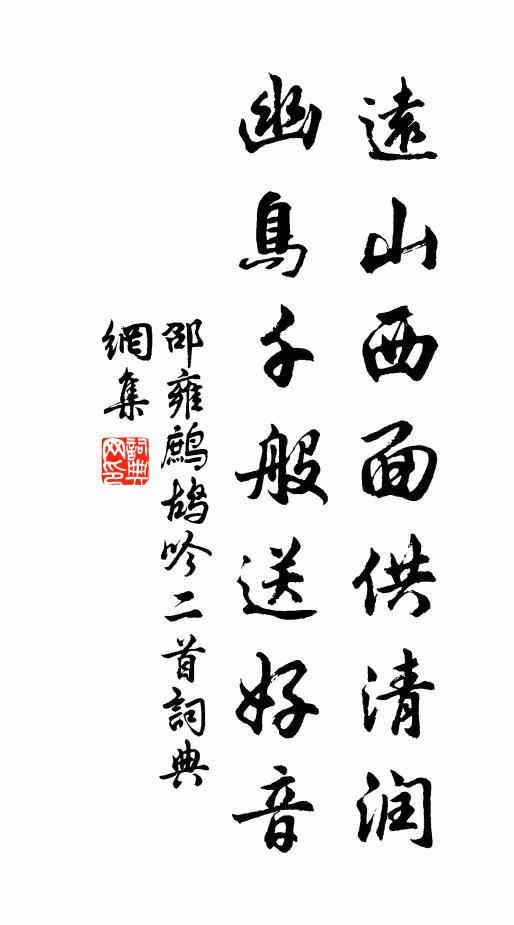 遠山西面供清润
幽鳥千般送好音
邵雍鷓鴣吟二首詞典
網集
詞典网印